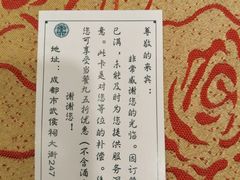 尊敬的来宾：
非常感谢您的光临。因订
已满，未能及时为您提供服务
意。此卡是对您等位的补偿。
您可享受当餐九五折优惠（不含酒
谢谢您！
地址：成都市武侯祠大街247